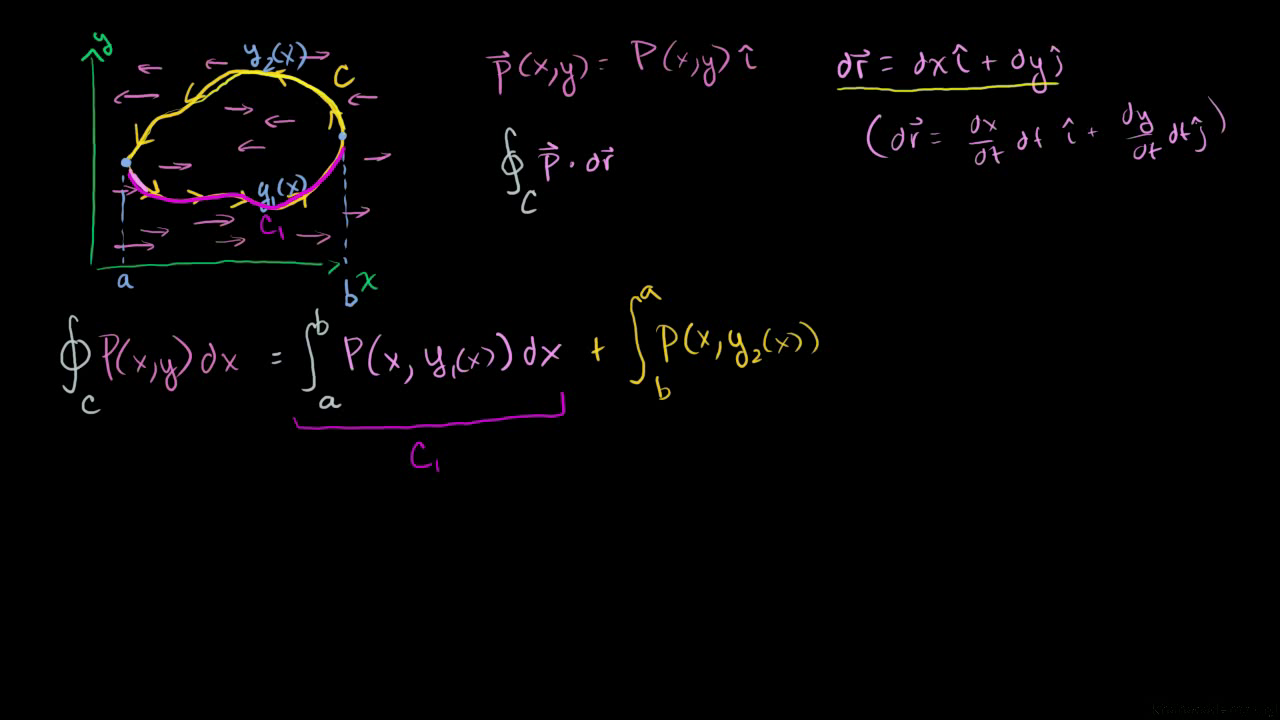 y
y₂(x)
C
y₁(x)
C₁
a
b
x
p⃗(x,y) = P(x,y) î
dr⃗ = dx î + dy ĵ
(dr⃗ = dx/dt dt î + dy/dt dt ĵ)
∮_C p⃗ · dr⃗
∮_C P(x,y) dx = ∫_a^b P(x, y₁(x)) dx + ∫_b^a P(x, y₂(x))
C₁